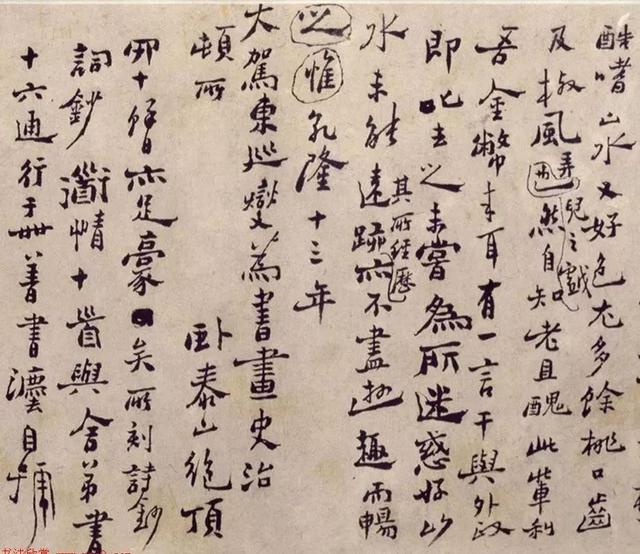 酷嗜山水又好色尤多餘桃口齒
及椒風弄兒之戲然自知老且醜此輩利
吾金幣来耳有一言干與外政
即叱去之未嘗為所迷惑好山
水未能遠跡其所經歷亦不盡遊趣而暢
之惟乾隆十三年
大駕東巡燮為書畫史治
頓所卧泰山絶頂
四十餘日亦足豪矣所刻詩鈔
詞鈔道情十首與舍弟書
十六通行于世善書法自號